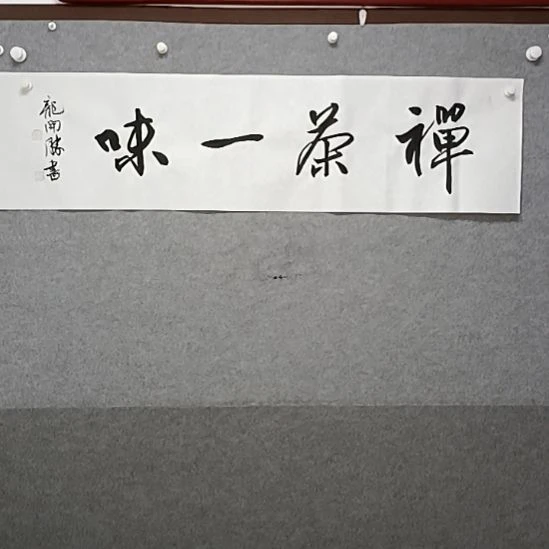 禪茶一味
龍開勝書